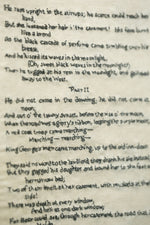 He rose upright in the stirrups; he scarce could reach her
hand,
But she loosened her hair i' the casement! His face burnt
like a brand
As the black cascade of perfume came tumbling over his
breast;
And he kissed its waves in the moonlight,
(Oh, sweet black waves in the moonlight!)
Then he tugged at his rein in the moonlight, and galloped
away to the West.
Part II
He did not come in the dawning; he did not come at
noon;
And out o' the tawny sunset, before the rise o' the moon,
When the road was a gipsy's ribbon, looping the purple moor,
A red-coat troop came marching—
Marching—marching—
King George's men came marching, up to the old inn-door.
They said no word to the landlord, they drank his ale instead,
But they gagged his daughter and bound her to the foot of her
narrow bed;
Two of them knelt at her casement, with muskets at their
side!
There was death at every window;
And hell at one dark window;
For Bess could see, through her casement, the road that